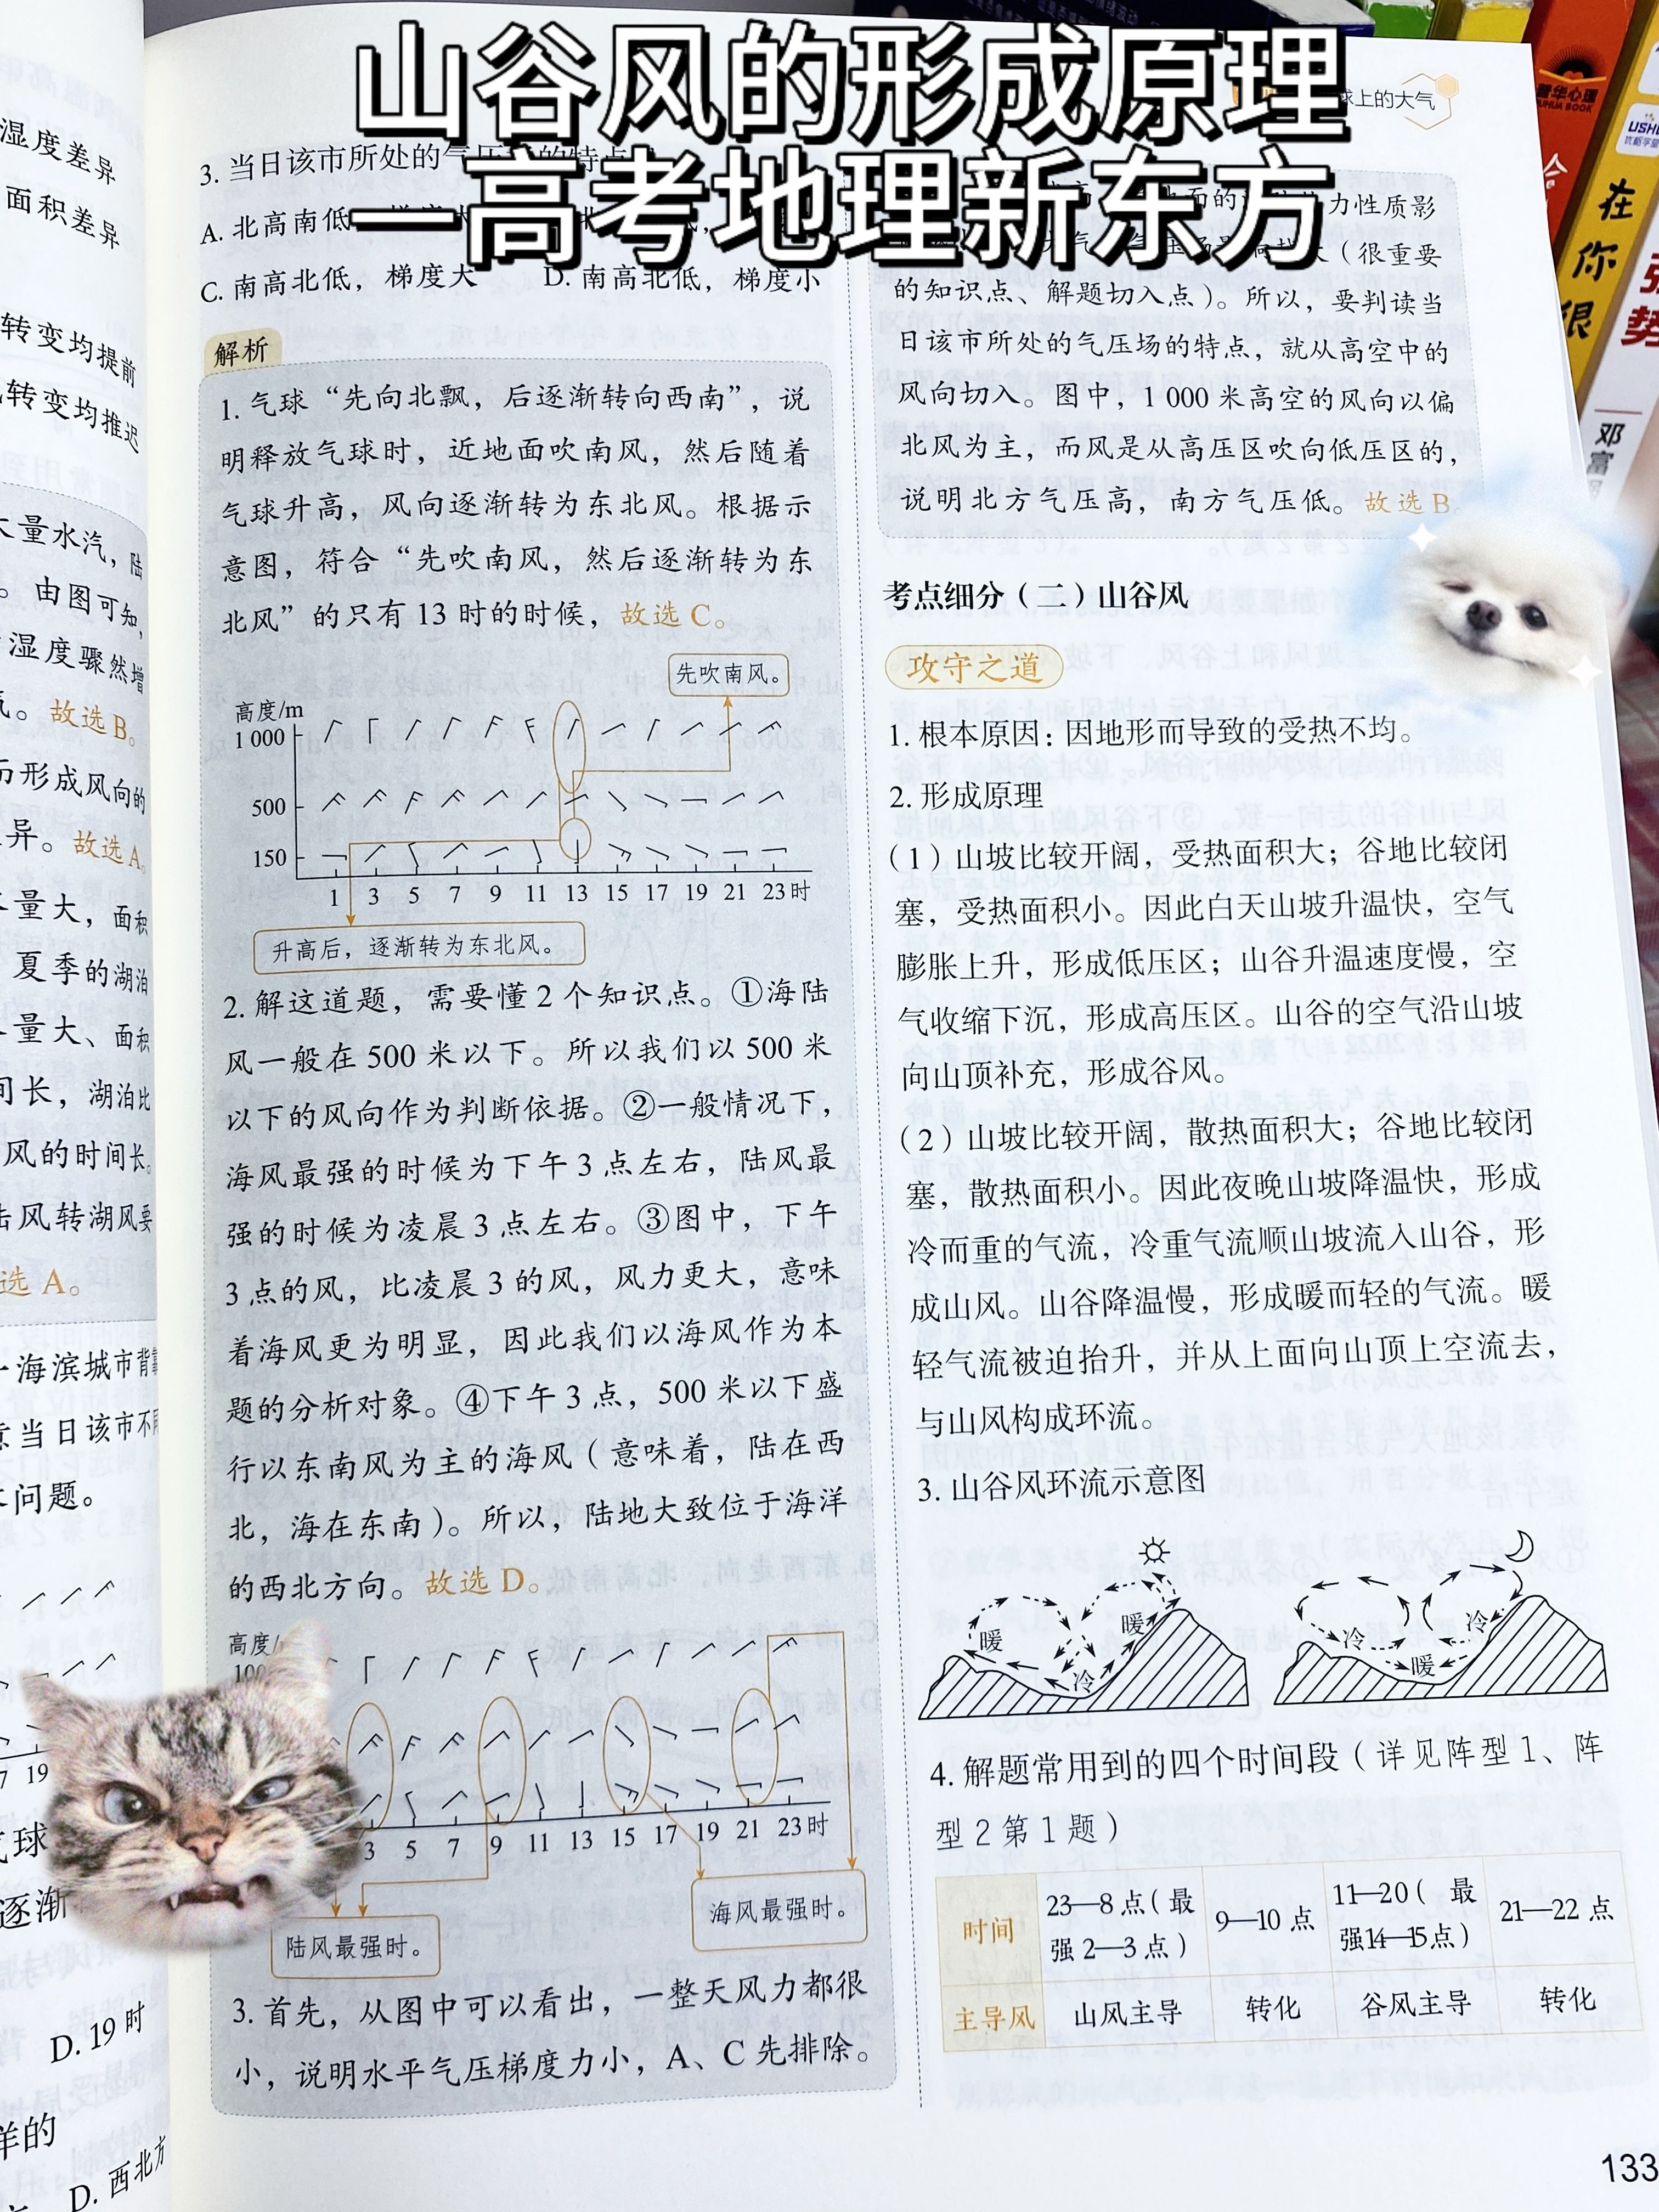 山谷风的形成原理
—高考地理新东方
球上的大气
湿度差异
面积差异
转变均提前
转变均推迟
大量水汽，陆
。由图可知，
湿度骤然增
故选B。
而形成风向的
异。故选A。
量大，面积
夏季的湖泊
量大、面积
间长，湖泊比
风的时间长。
陆风转湖风要
选A。
一海滨城市背靠
当日该市不同
问题。
7 19
气球
逐渐
D. 19时
样的
D. 西北方
3. 当日该市所处的气压
的特点
A. 北高南低
C. 南高北低，梯度大 D. 南高北低，梯度小
解析
1. 气球“先向北飘，后逐渐转向西南”，说
明释放气球时，近地面吹南风，然后随着
气球升高，风向逐渐转为东北风。根据示
意图，符合“先吹南风，然后逐渐转为东
北风”的只有13时的时候，故选C。
先吹南风。
高度/m
1 000
500
150
1 3 5 7 9 11 13 15 17 19 21 23时
升高后，逐渐转为东北风。
2. 解这道题，需要懂2个知识点。①海陆
风一般在500米以下。所以我们以500米
以下的风向作为判断依据。②一般情况下，
海风最强的时候为下午3点左右，陆风最
强的时候为凌晨3点左右。③图中，下午
3点的风，比凌晨3的风，风力更大，意味
着海风更为明显，因此我们以海风作为本
题的分析对象。④下午3点，500米以下盛
行以东南风为主的海风（意味着，陆在西
北，海在东南）。所以，陆地大致位于海洋
的西北方向。故选D。
高度/
100
3 5 7 9 11 13 15 17 19 21 23时
陆风最强时。
海风最强时。
3. 首先，从图中可以看出，一整天风力都很
小，说明水平气压梯度力小，A、C先排除。
力性质影
（很重要
的知识点、解题切入点）。所以，要判读当
日该市所处的气压场的特点，就从高空中的
风向切入。图中，1 000米高空的风向以偏
北风为主，而风是从高压区吹向低压区的，
说明北方气压高，南方气压低。故选B
考点细分（二）山谷风
攻守之道
1. 根本原因：因地形而导致的受热不均。
2. 形成原理
（1）山坡比较开阔，受热面积大；谷地比较闭
塞，受热面积小。因此白天山坡升温快，空气
膨胀上升，形成低压区；山谷升温速度慢，空
气收缩下沉，形成高压区。山谷的空气沿山坡
向山顶补充，形成谷风。
（2）山坡比较开阔，散热面积大；谷地比较闭
塞，散热面积小。因此夜晚山坡降温快，形成
冷而重的气流，冷重气流顺山坡流入山谷，形
成山风。山谷降温慢，形成暖而轻的气流。暖
轻气流被迫抬升，并从上面向山顶上空流去，
与山风构成环流。
3. 山谷风环流示意图
暖 暖 冷
冷 冷 暖
4. 解题常用到的四个时间段（详见阵型1、阵
型2第1题）
时间 23—8点（最强2—3点） 9—10点 11—20（最强14—15点） 21—22点
主导风 山风主导 转化 谷风主导 转化
133
普华心理
USHU
在
你
很
邓
富
势